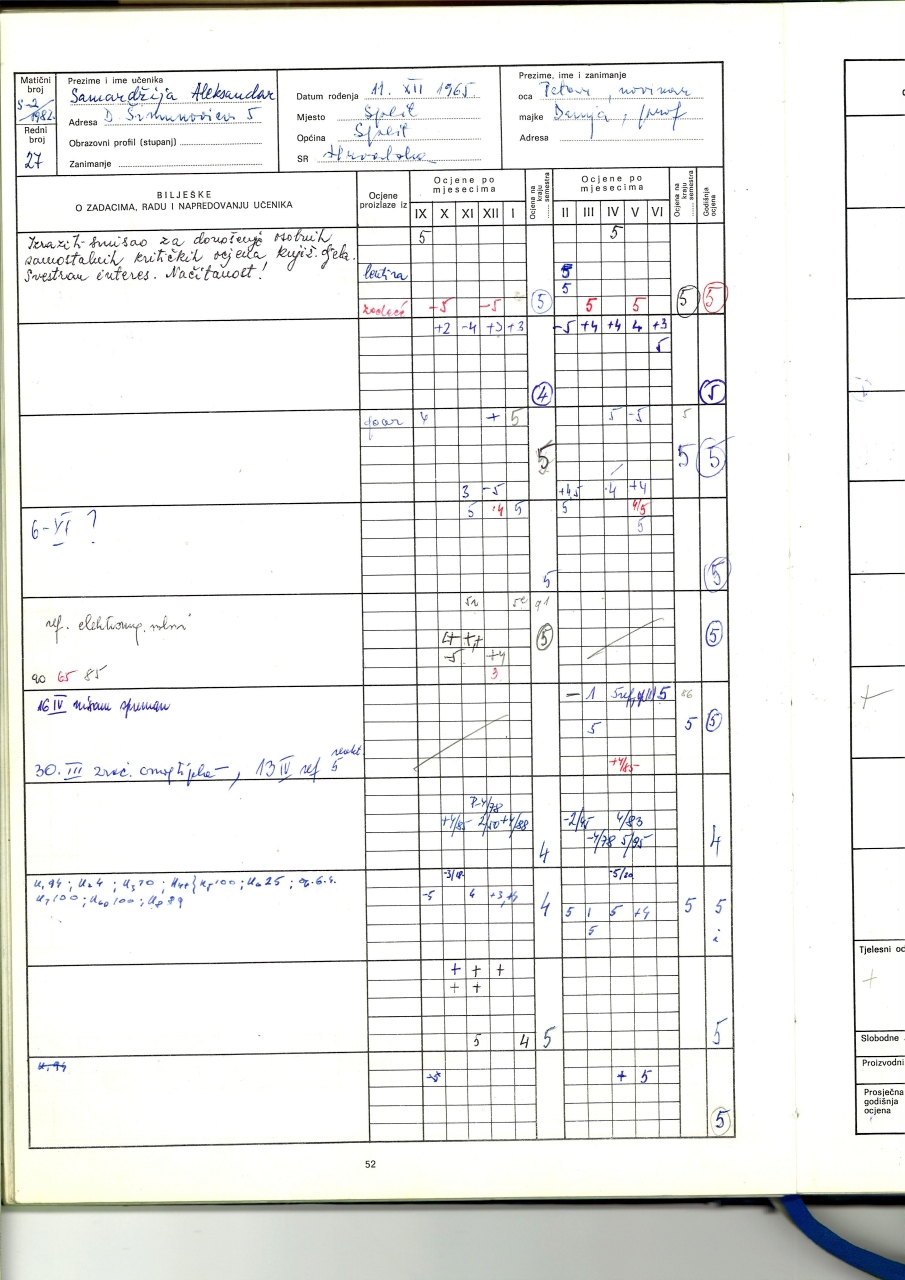 Matični broj
S-2/1982.
Redni broj
27
Prezime i ime učenika
Samardžija Aleksandar
Adresa D Šimunovićeva 5
Obrazovni profil (stupanj)
Zanimanje
Datum rođenja 11. XII 1965
Mjesto Split
Općina Split
SR Hrvatska
Prezime, ime i zanimanje
oca Petar, novinar
majke Danja, prof
Adresa
BILJEŠKE
O ZADACIMA, RADU I NAPREDOVANJU UČENIKA
Ocjene proizlaze iz
Ocjene po mjesecima
IX X XI XII I
Ocjena na kraju ........ semestra
Ocjene po mjesecima
II III IV V VI
Ocjena na kraju ........ semestra
Godišnja ocjena
Izrazit smisao za donošenje osobnih 5 5
samostalnih kritičkih ocjena knjiš. djela.
Svestran interes. Načitanost! lektira 5
5
zadaće -5 -5 5 5 5 5 5
+2 -4 +3 +3 -5 +4 +4 4 +3
5
4 5
4 + 5 5 -5 5
5 5 5
3 -5 +4,5 4 +4
6-VI ? 5 4 5 5 4/5
5
5 5
91
ref. elektromg. 5 5
4+ ++
-5 +4
90 65 85 3
16 IV nisam spreman - 1 5 ref 5 86
5 5 5
30. III 13 IV ref 5
+4/85
P-4/78
+4/85 2/50 +4/88 -2/45 4/83
-4/78 5/95
4 4
-3/ -5/20
-5 4 +3,+4 4 5 1 5 +4 5 5
5
+ + +
+ +
5 4 5 5
+ 5
5
52
Tjelesni od
Slobodne
Proizvodni
Prosječna godišnja ocjena